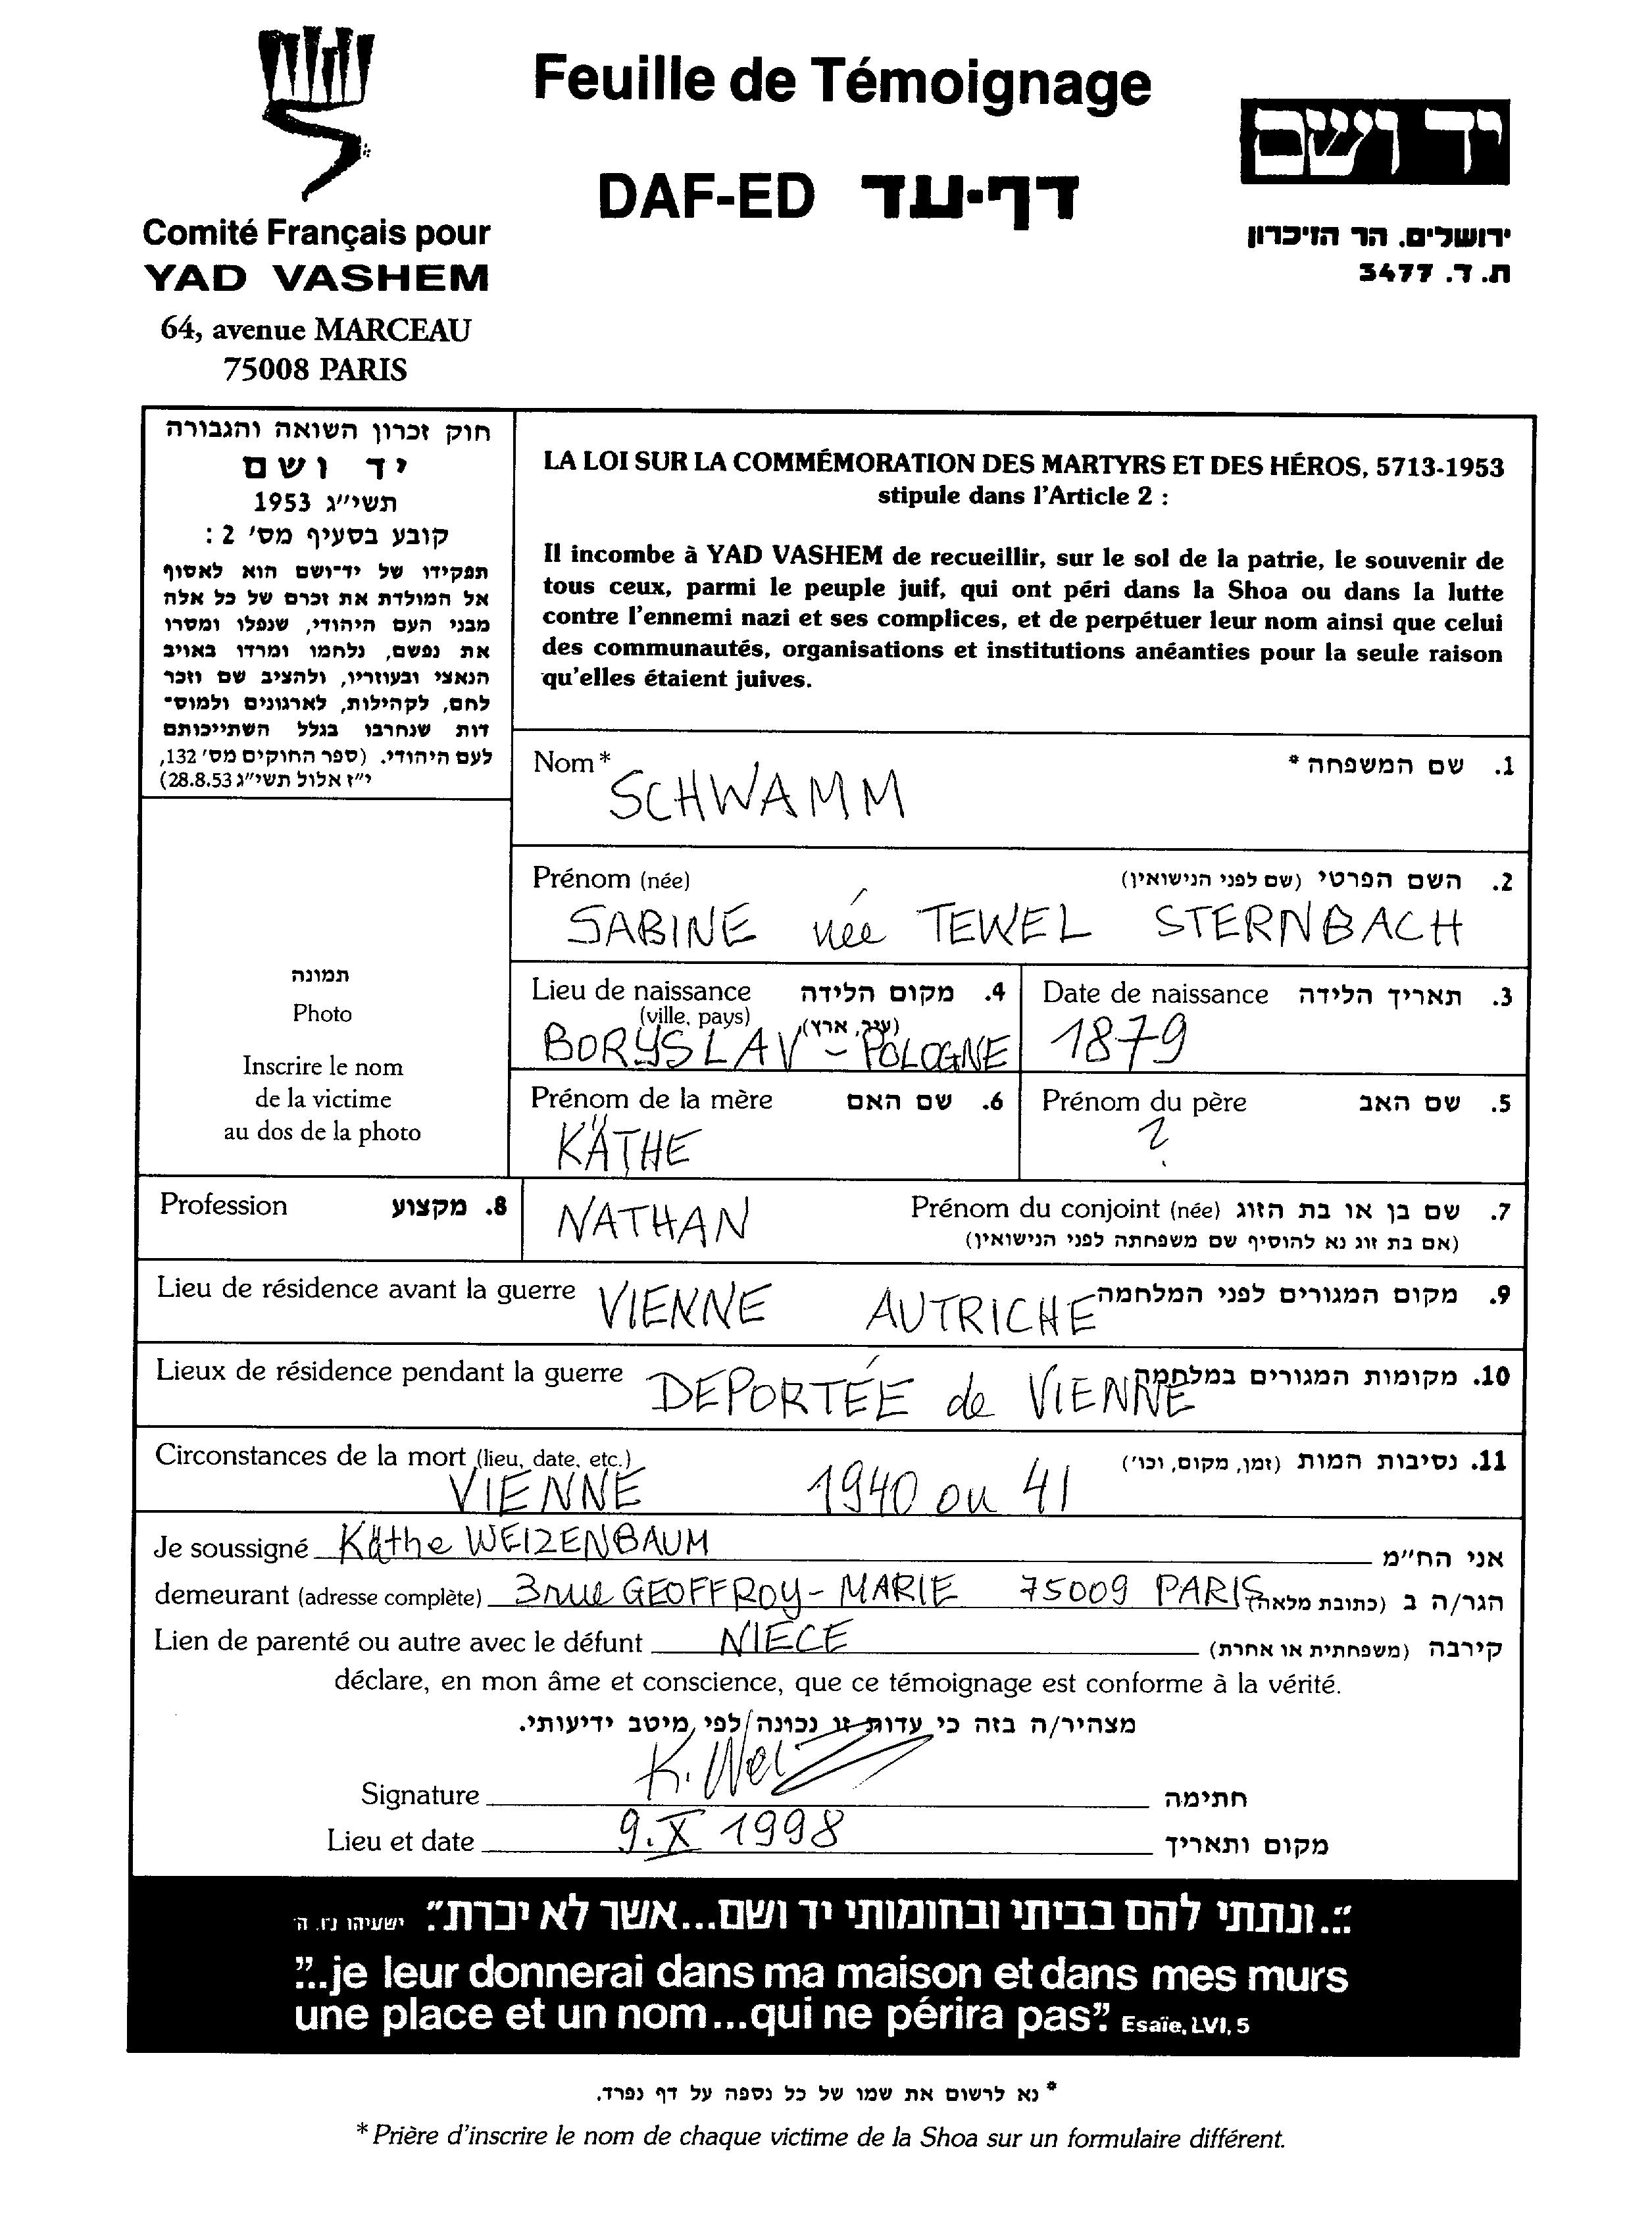 Feuille de Témoignage
DAF-ED דף-עד
Comité Français pour
YAD VASHEM
64, avenue MARCEAU
75008 PARIS
יד ושם
ירושלים. הר הזיכרון
ת. ד. 3477
חוק זכרון השואה והגבורה
יד ושם
תשי״ג 1953
קובע בסעיף מס׳ 2 :
תפקידו של יד־ושם הוא לאסוף
אל המולדת את זכרם של כל אלה
מבני העם היהודי, שנפלו ומסרו
את נפשם, נלחמו ומרדו באויב
הנאצי ובעוזריו, ולהציב שם וזכר
להם, לקהילות, לארגונים ולמוס־
דות שנחרבו בגלל השתייכותם
לעם היהודי. (ספר החוקים מס׳ 132,
י״ז אלול תשי״ג 28.8.53)
LA LOI SUR LA COMMÉMORATION DES MARTYRS ET DES HÉROS, 5713-1953
stipule dans l'Article 2 :
Il incombe à YAD VASHEM de recueillir, sur le sol de la patrie, le souvenir de
tous ceux, parmi le peuple juif, qui ont péri dans la Shoa ou dans la lutte
contre l'ennemi nazi et ses complices, et de perpétuer leur nom ainsi que celui
des communautés, organisations et institutions anéanties pour la seule raison
qu'elles étaient juives.
Nom * 1. שם המשפחה *
SCHWAMM
Prénom (née) 2. השם הפרטי (שם לפני הנישואין)
SABINE née TEWEL STERNBACH
Lieu de naissance 4. מקום הלידה
(ville, pays) (עיר, ארץ)
BORYSLAV - POLOGNE
Date de naissance 3. תאריך הלידה
1879
Prénom de la mère 6. שם האם
KÄTHE
Prénom du père 5. שם האב
?
תמונה
Photo
Inscrire le nom
de la victime
au dos de la photo
Profession 8. מקצוע
NATHAN Prénom du conjoint (née) 7. שם בן או בת הזוג
(אם בת זוג נא להוסיף שם משפחתה לפני הנישואין)
Lieu de résidence avant la guerre VIENNE AUTRICHE 9. מקום המגורים לפני המלחמה
Lieux de résidence pendant la guerre DÉPORTÉE de VIENNE 10. מקומות המגורים במלחמה
Circonstances de la mort (lieu, date, etc.) 11. נסיבות המות (זמן, מקום, וכו׳)
VIENNE 1940 ou 41
Je soussigné Käthe WEIZENBAUM אני הח״מ
demeurant (adresse complète) 3 rue GEOFFROY-MARIE 75009 PARIS הגר/ה ב (כתובת מלאה)
Lien de parenté ou autre avec le défunt NIECE קירבה (משפחתית או אחרת)
déclare, en mon âme et conscience, que ce témoignage est conforme à la vérité.
מצהיר/ה בזה כי עדות זו נכונה לפי מיטב ידיעותי.
Signature K. Wei חתימה
Lieu et date 9.X 1998 מקום ותאריך
"...ונתתי להם בביתי ובחומותי יד ושם...אשר לא יכרת" ישעיהו נ״ו. ה׳
"...je leur donnerai dans ma maison et dans mes murs
une place et un nom...qui ne périra pas". Esaïe, LVI, 5
* נא לרשום את שמו של כל נספה על דף נפרד.
* Prière d'inscrire le nom de chaque victime de la Shoa sur un formulaire différent.